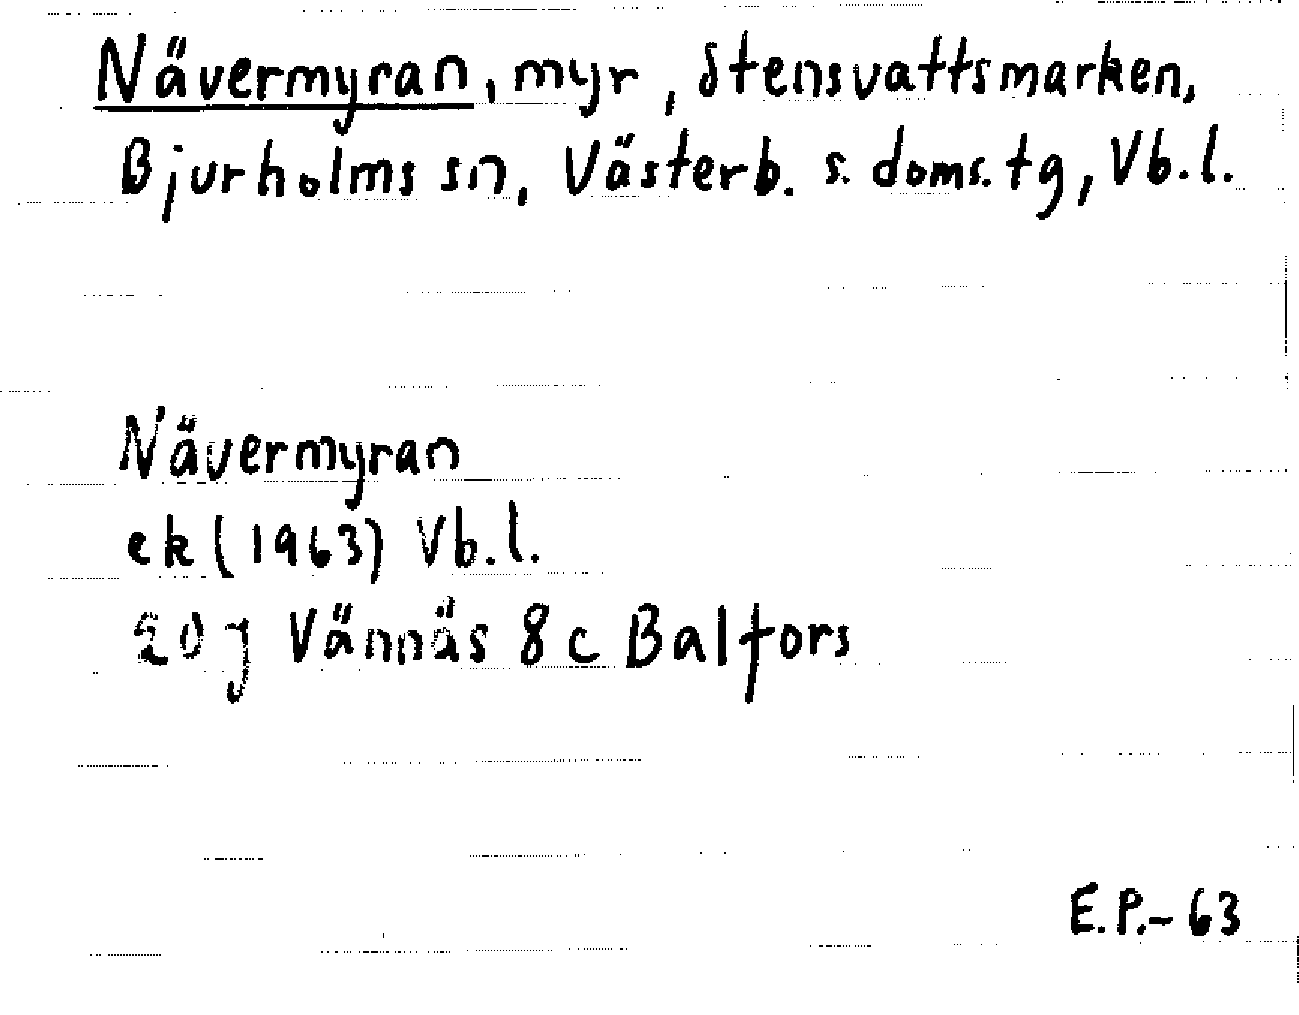 Nävermyran, myr, Stensvattsmarken,
Bjurholms sn, Västerb. s. doms. tg, Vb. l.
Nävermyran
ek (1963) Vb. l.
20 J Vännäs 8 c Balfors
E.P.-63